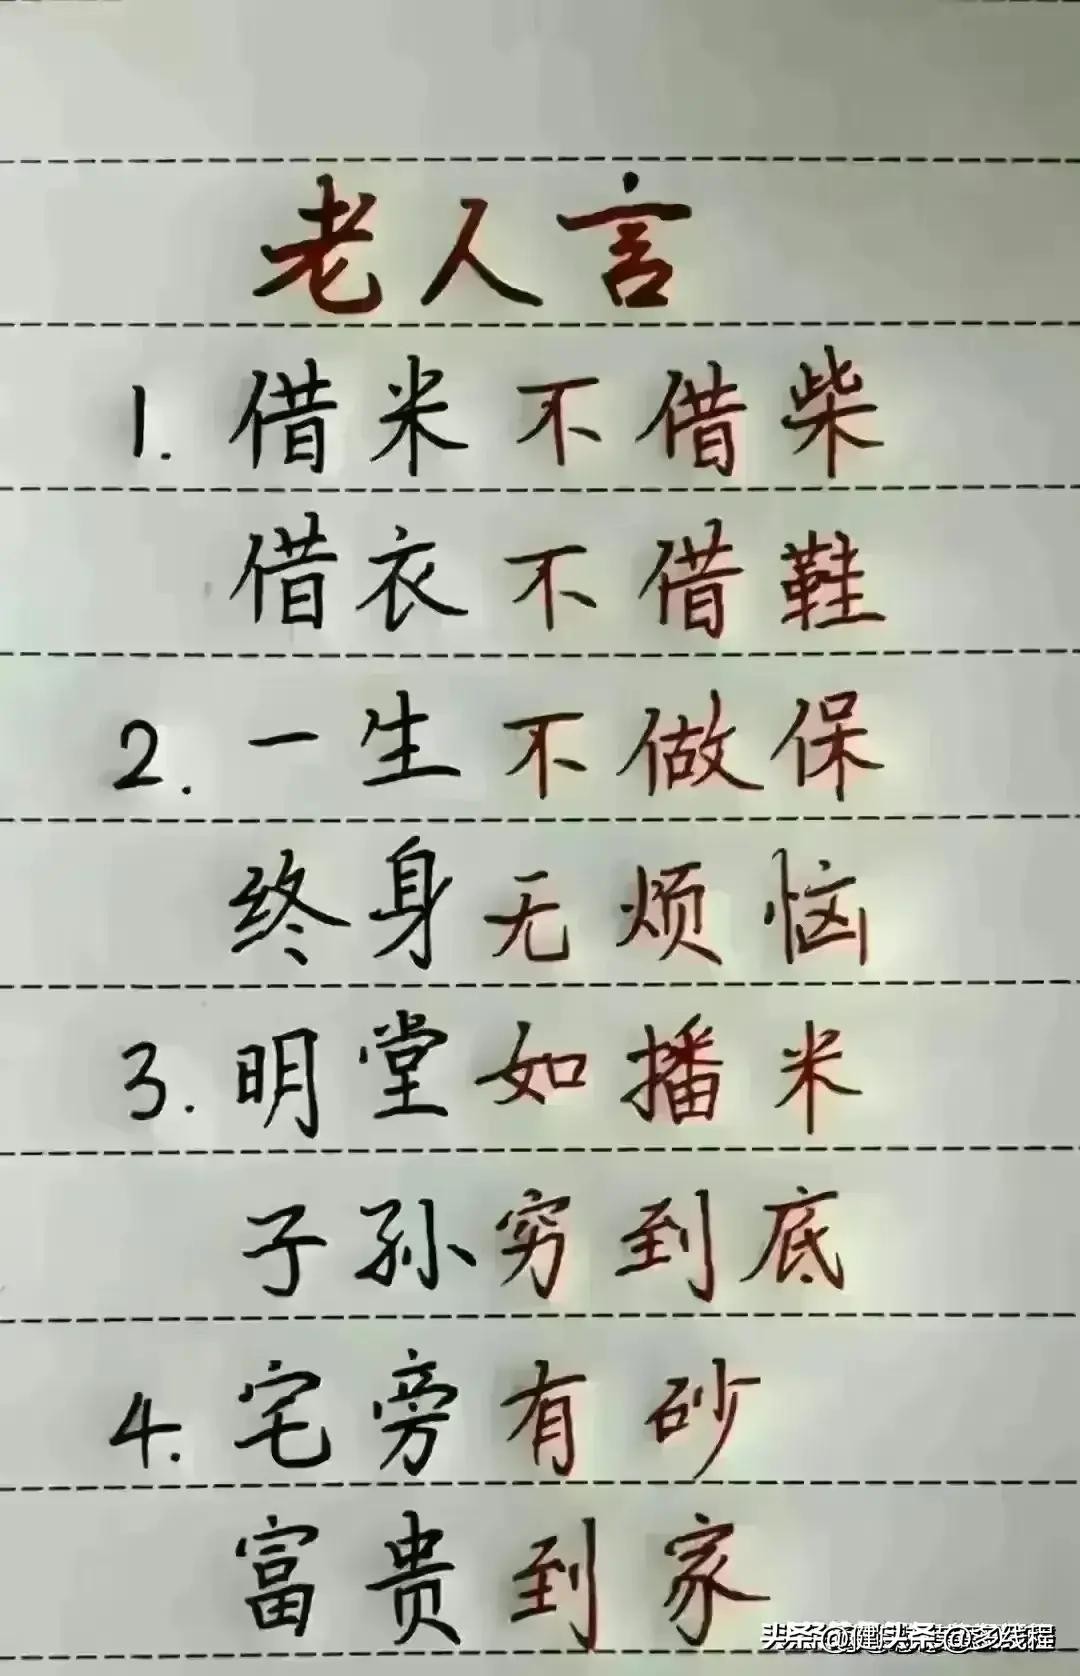 老人言
1.借米不借柴
借衣不借鞋
2.一生不做保
终身无烦恼
3.明堂如播米
子孙穷到底
4.宅旁有砂
富贵到家
头条@健
头条@多线程